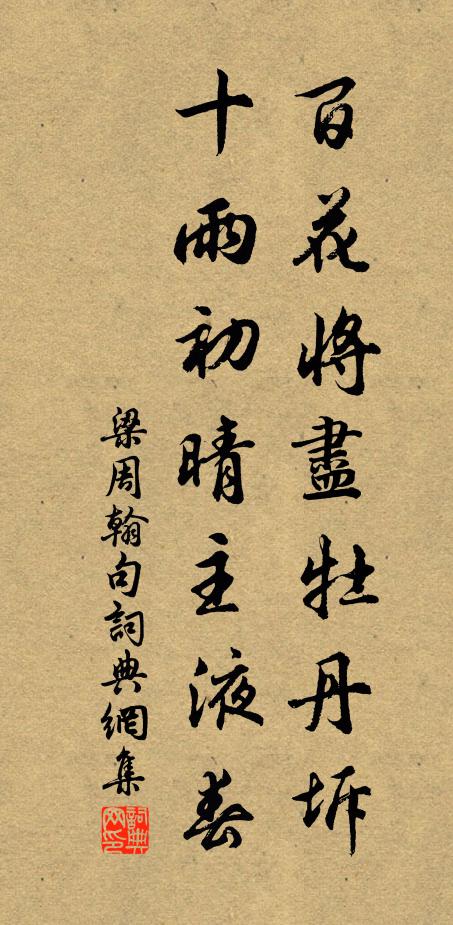 百花將盡牡丹坼
十雨初晴主液春
梁周翰句詞典網集
詞典網印